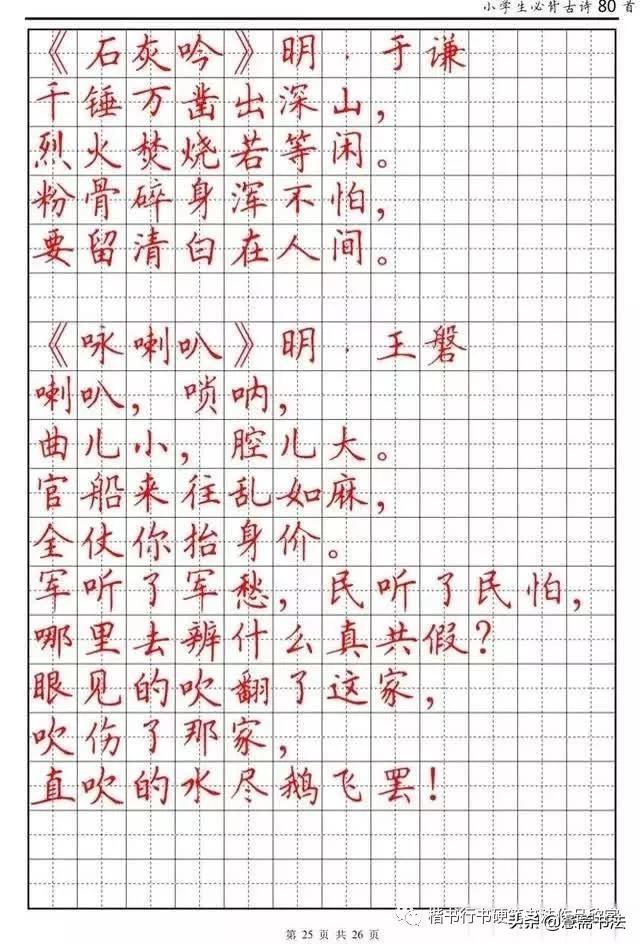 小学生必背古诗80首
《石灰吟》明·于谦
千锤万凿出深山，
烈火焚烧若等闲。
粉骨碎身浑不怕，
要留清白在人间。
《咏喇叭》明·王磐
喇叭，唢呐，
曲儿小，腔儿大。
官船来往乱如麻，
全仗你抬身价。
军听了军愁，民听了民怕，
哪里去辨什么真共假？
眼见的吹翻了这家，
吹伤了那家，
直吹的水尽鹅飞罢！
楷书行书硬笔书法作品欣赏
头条@意斋书法
第 25 页 共 26 页